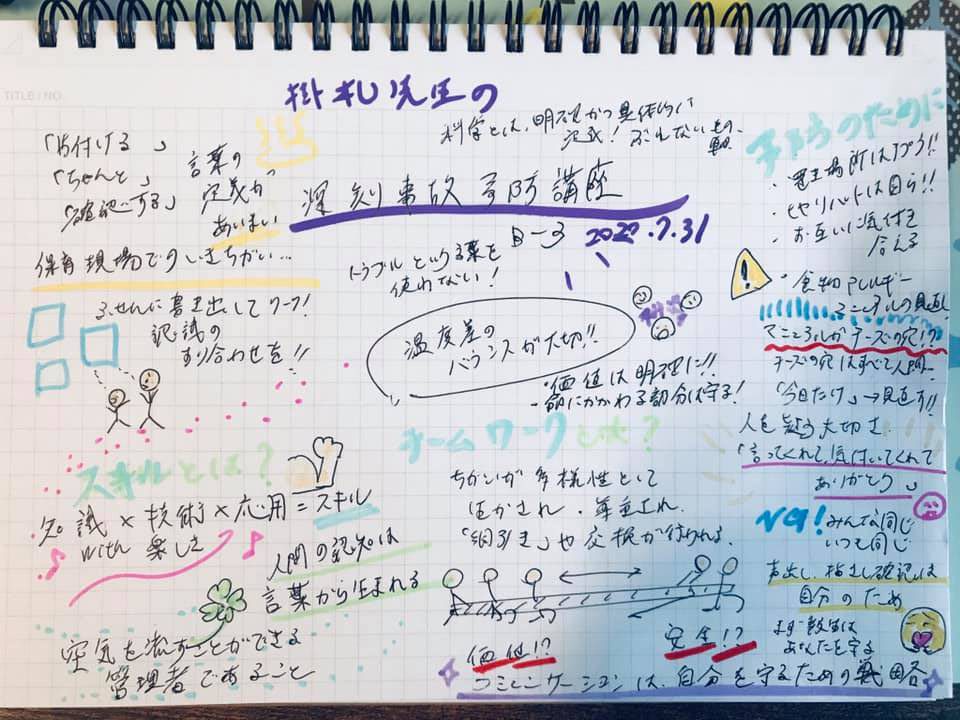 TITLE / NO.
掛札先生の
深刻事故予防講座
B-3 2022.7.31
科学とは、明確かつ具体的に
定義！ぶれないもの
「片付ける」
「ちゃんと」
「確認する」
言葉の
定義が
あいまい
保育現場でのいきちがい…
ふせんに書き出してワーク！
認識の
すり合わせを!!
トラブルという言葉を
使わない！
温度差の
バランスが大切!!
・価値は明確に!!
・命にかかわる部分は守る！
予防のために
・置き場所はリアル!!
・ヒヤリハットは自ら!!
・お互いに気付き
合える
・食物アレルギー
マニュアルの見直し
マニュアルがチーズの穴!?
チーズの穴はすべて人間
「今日だけ」→見直す!!
人を疑う大切さ
「言ってくれて、気付いてくれて
ありがとう」
NG! みんな同じ
いつも同じ
声出し、指さし確認は
自分のため
まず
あなたを守る
スキルとは？
知識×技術×応用=スキル
with 楽しさ
人間の認知は
言葉から生まれる
空気を
ことができる
管理者であること
チームワークとは？
ちがいが多様性として
活かされ、尊重され、
「綱引き」や交換が行われる。
価値!? 安全!?
コミュニケーションは、自分を守るための戦略